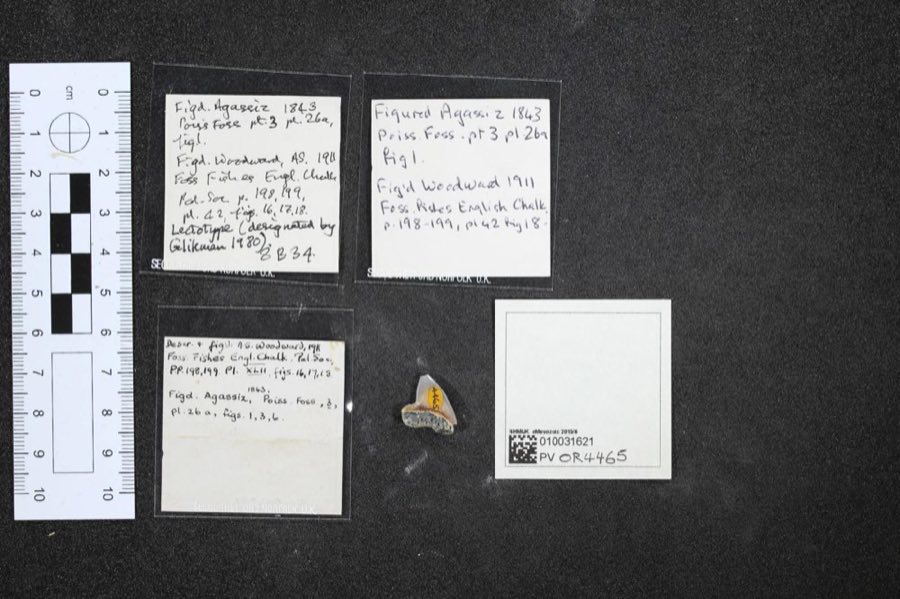 0 cm 0
1 1
2 2
3 3
4 4
5 5
6 6
7 7
8 8
9 9
10 10
Figd. Agassiz 1843
Poiss Foss pt. 3 pl. 26a,
fig 1.
Figd. Woodward, AS. 1911
Foss Fishes Engl. Chalk
Pal. Soc p. 198, 199,
pl. 42, figs. 16, 17, 18.
Lectotype (designated by
Glikman 1980).
8B34.
NORFOLK U.K.
Figured Agassiz 1843
Poiss Foss. pt 3 pl 26a
fig 1.
Fig'd Woodward 1911
Foss. Fishes English Chalk.
p. 198-199, pl 42 fig 18.
NORFOLK U.K.
Descr. + figd. A.S. Woodward, 1911
Foss. Fishes Engl. Chalk. Pal Soc.
PP. 198, 199 Pl. XLII, figs. 16, 17, 18
1843.
Figd. Agassiz, Poiss. Foss., 3,
pl. 26a, figs. 1, 3, 6.
4465
NHMUK eMesozoic 2015/6
010031621
PV OR4465